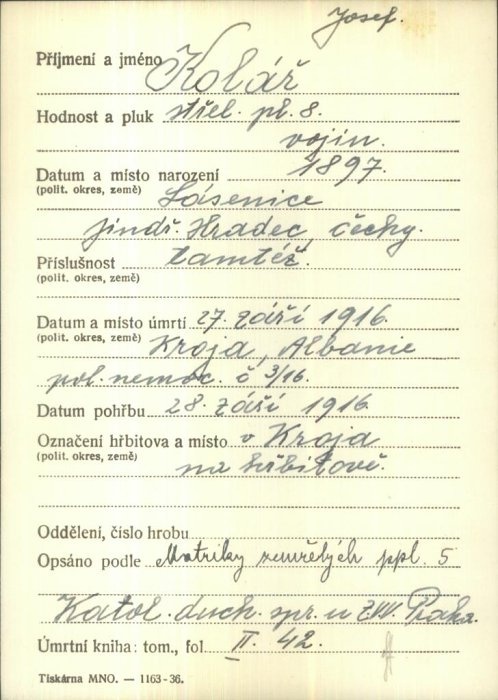 Josef.
Příjmení a jméno Kolář
Hodnost a pluk střel. pl. 8.
vojín.
Datum a místo narození 1897.
(polit. okres, země) Lásenice
Jindř. Hradec, čechy.
Příslušnost tamtéž.
(polit. okres, země)
Datum a místo úmrtí 27. září 1916.
(polit. okres, země) Kroja, Albanie
pol. nemoc. č 3/16.
Datum pohřbu 28. září 1916.
Označení hřbitova a místo v Kroja
(polit. okres, země) na hřbitově.
Oddělení, číslo hrobu
Opsáno podle Matriky zemřelých ppl. 5
Katol. duch. spr. u Z.V.V. Praha.
Úmrtní kniha: tom., fol. II. 42.
Tiskárna MNO. — 1163-36.